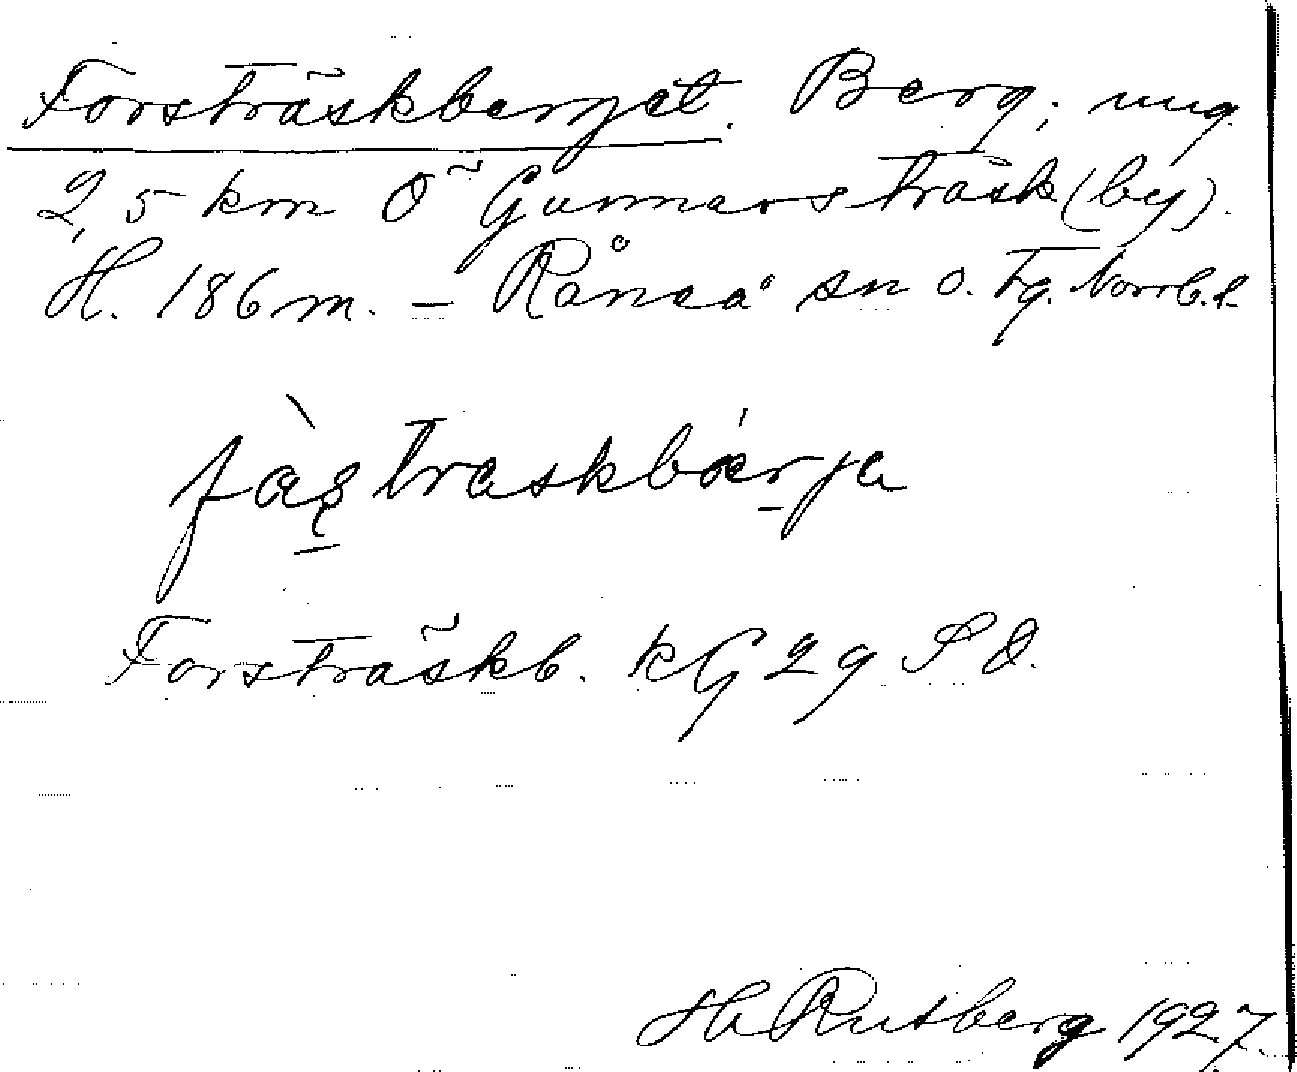 Forsträskberget. Berg; ung.
2,5 km Ö Gunnarsträsk (by).
H. 186 m. – Råneå sn o. tg. Norrb. l.
fàs̱traskbá̱rja
Forsträskb. kG 29 SO.
H Rutberg 1927.